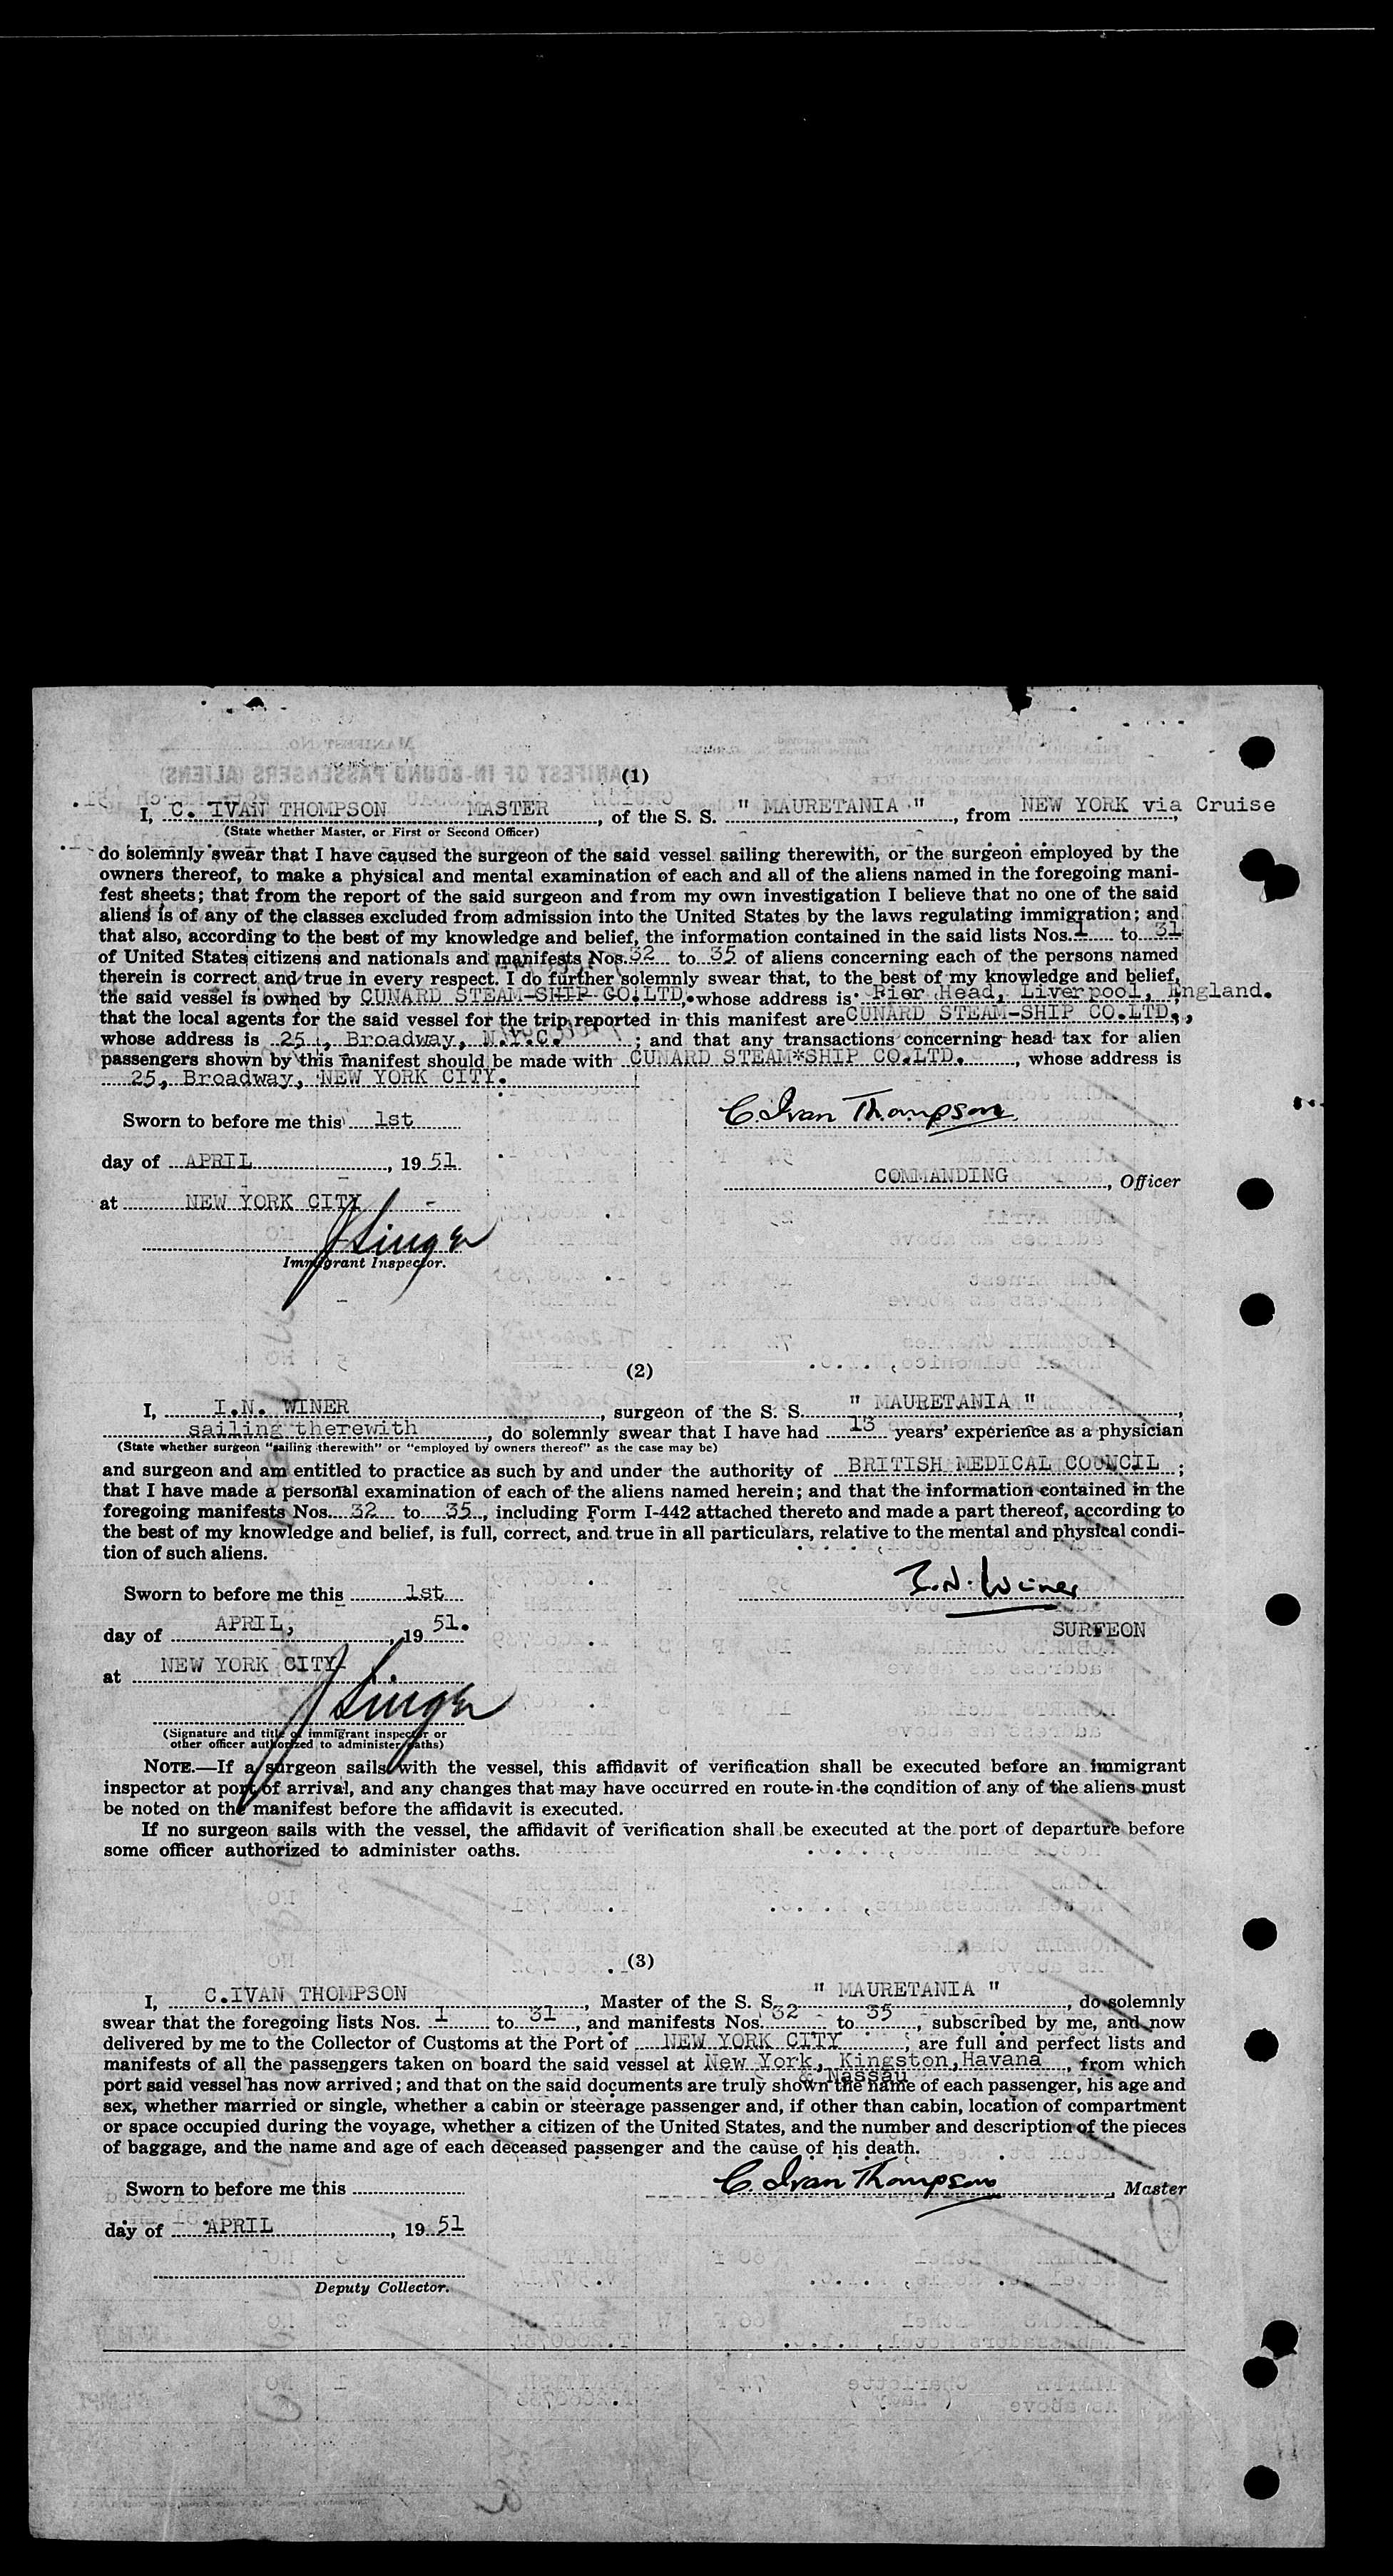 (1)
I, C. IVAN THOMPSON MASTER, of the S. S. " MAURETANIA ", from NEW YORK via Cruise
(State whether Master, or First or Second Officer)
do solemnly swear that I have caused the surgeon of the said vessel sailing therewith, or the surgeon employed by the
owners thereof, to make a physical and mental examination of each and all of the aliens named in the foregoing mani-
fest sheets; that from the report of the said surgeon and from my own investigation I believe that no one of the said
aliens is of any of the classes excluded from admission into the United States by the laws regulating immigration; and
that also, according to the best of my knowledge and belief, the information contained in the said lists Nos. 1 to 31
of United States citizens and nationals and manifests Nos. 32 to 35 of aliens concerning each of the persons named
therein is correct and true in every respect. I do further solemnly swear that, to the best of my knowledge and belief,
the said vessel is owned by CUNARD STEAM-SHIP CO.LTD. whose address is Pier Head, Liverpool, England.
that the local agents for the said vessel for the trip reported in this manifest are CUNARD STEAM-SHIP CO.LTD.,
whose address is 25, Broadway, N.Y.C. ; and that any transactions concerning head tax for alien
passengers shown by this manifest should be made with CUNARD STEAM*SHIP CO.LTD. , whose address is
25, Broadway, NEW YORK CITY.
Sworn to before me this 1st C. Ivan Thompson
day of APRIL , 19 51
COMMANDING , Officer
at NEW YORK CITY -
J Singer
Immigrant Inspector.
(2)
I, I.N. WINER , surgeon of the S. S. " MAURETANIA " ,
sailing therewith , do solemnly swear that I have had 13 years' experience as a physician
(State whether surgeon "sailing therewith" or "employed by owners thereof" as the case may be)
and surgeon and am entitled to practice as such by and under the authority of BRITISH MEDICAL COUNCIL ;
that I have made a personal examination of each of the aliens named herein; and that the information contained in the
foregoing manifests Nos. 32 to 35 , including Form I-442 attached thereto and made a part thereof, according to
the best of my knowledge and belief, is full, correct, and true in all particulars, relative to the mental and physical condi-
tion of such aliens.
Sworn to before me this 1st I.N. Winer
day of APRIL, , 19 51. SURFEON
at NEW YORK CITY
J Singer
(Signature and title of immigrant inspector or
other officer authorized to administer oaths)
NOTE.—If a surgeon sails with the vessel, this affidavit of verification shall be executed before an immigrant
inspector at port of arrival, and any changes that may have occurred en route in the condition of any of the aliens must
be noted on the manifest before the affidavit is executed.
If no surgeon sails with the vessel, the affidavit of verification shall be executed at the port of departure before
some officer authorized to administer oaths.
(3)
I, C.IVAN THOMPSON , Master of the S. S. " MAURETANIA " , do solemnly
swear that the foregoing lists Nos. 1 to 31 , and manifests Nos. 32 to 35 , subscribed by me, and now
delivered by me to the Collector of Customs at the Port of NEW YORK CITY , are full and perfect lists and
manifests of all the passengers taken on board the said vessel at New York, Kingston,Havana , from which
& Nassau
port said vessel has now arrived; and that on the said documents are truly shown the name of each passenger, his age and
sex, whether married or single, whether a cabin or steerage passenger and, if other than cabin, location of compartment
or space occupied during the voyage, whether a citizen of the United States, and the number and description of the pieces
of baggage, and the name and age of each deceased passenger and the cause of his death.
Sworn to before me this C. Ivan Thompson , Master
day of APRIL , 19 51
Deputy Collector.